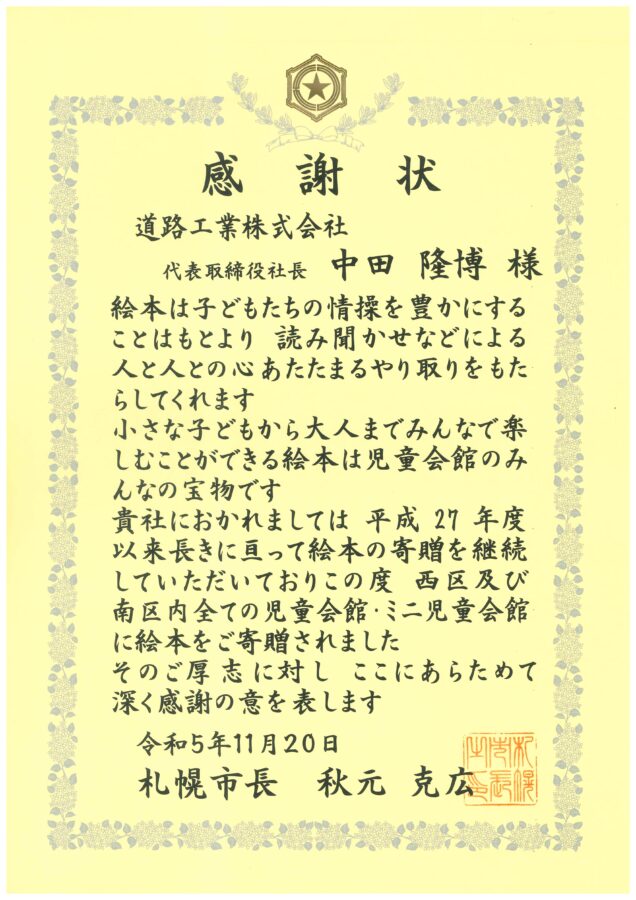 感謝状
道路工業株式会社
代表取締役社長 中田 隆博 様
絵本は子どもたちの情操を豊かにする
ことはもとより 読み聞かせなどによる
人と人との心あたたまるやり取りをもた
らしてくれます
小さな子どもから大人までみんなで楽
しむことができる絵本は児童会館のみ
んなの宝物です
貴社におかれましては 平成 27 年度
以来長きに亘って絵本の寄贈を継続
していただいておりこの度 西区及び
南区内全ての児童会館・ミニ児童会館
に絵本をご寄贈されました
そのご厚志に対し ここにあらためて
深く感謝の意を表します
令和5年11月20日
札幌市長 秋元 克広
札幌
市長
之印